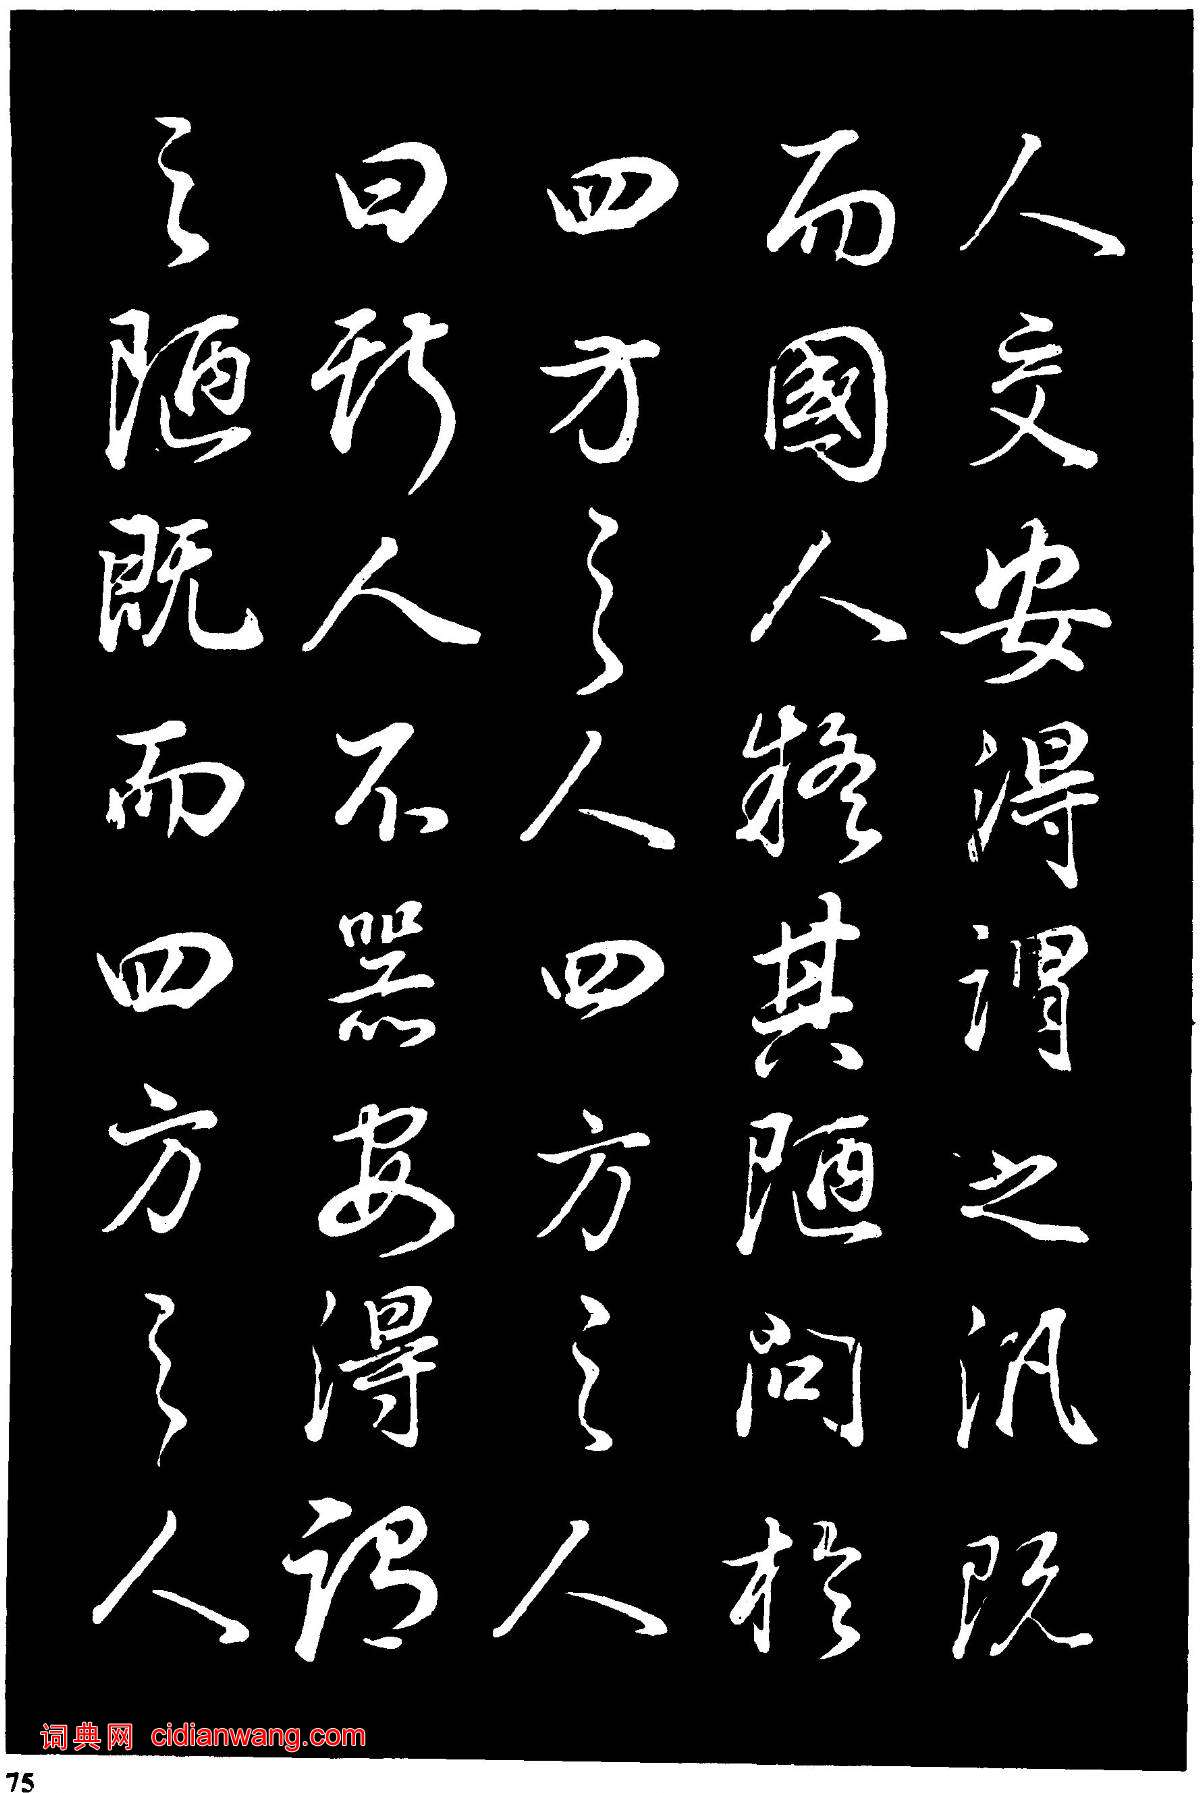 人交安得謂之汎既
而國人疑其陋問於
四方之人四方之人
曰斯人不器安得謂
之陋既而四方之人
词典网 cidianwang.com
75